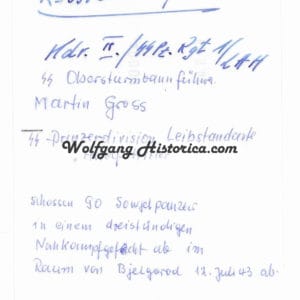 Kdr. II./SS Pz. Rgt 1/LAH
SS Obersturmbannführer
Martin Gross
SS-Panzerdivision Leibstandarte
Wolfgang Historica.com
schossen 90 Sowjetpanzer
in einem dreistündigen
Nahkampfgefecht ab im
Raum von Bjelgorod 12. Juli 43 ab.